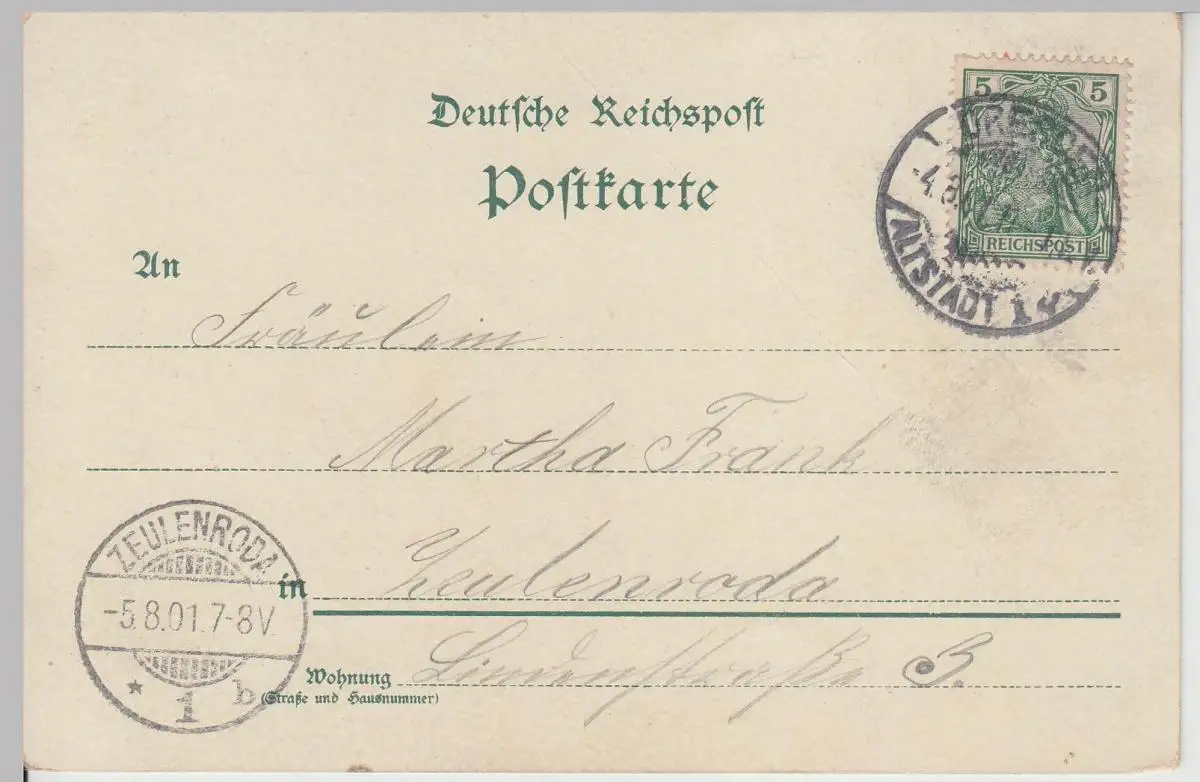 Deutsche Reichspost
Postkarte
5 5
REICHSPOST
ALTSTADT 1
An
Fräulein
Martha Frank
ZEULENRODA
-5.8.01.7-8V.
* 1 b
in Zeulenroda
Wohnung Lindenstraße 3.
(Straße und Hausnummer)